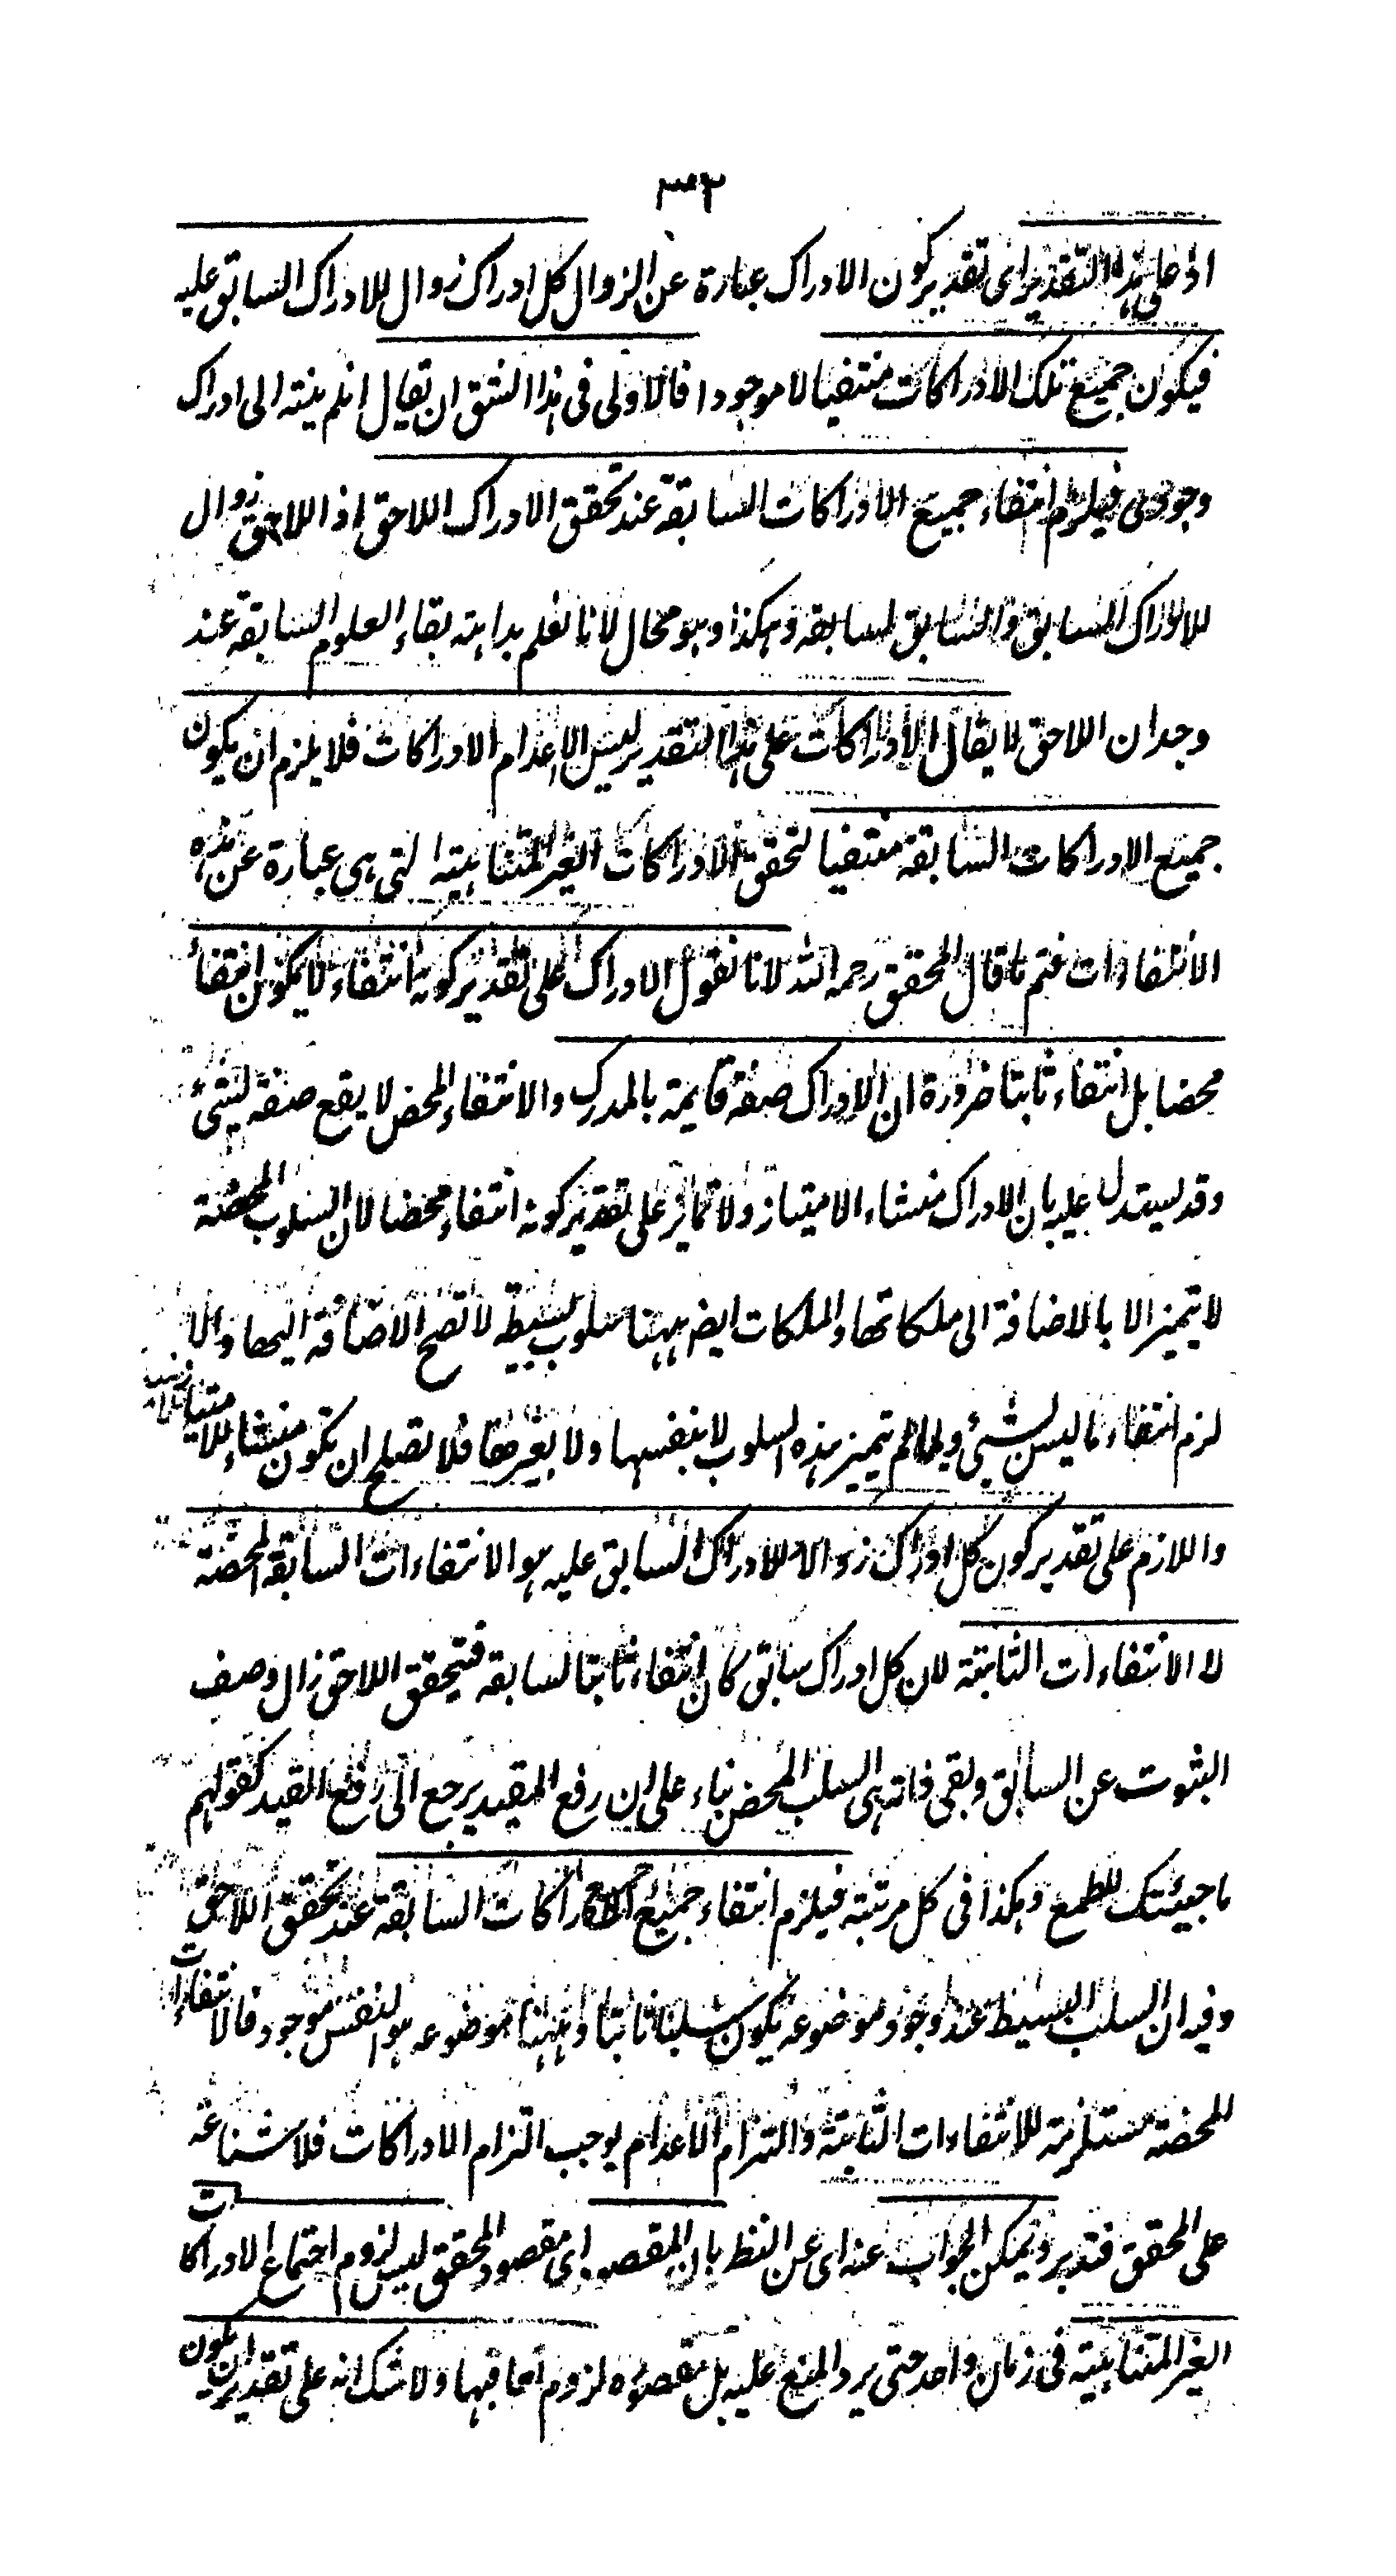 ٣٢
اذ على هذا التقدير اى تقدير كون الادراك عبارة عن الزوال كل ادراك زوال للادراك السابق عليه
فيكون جميع تلك الادراكات منتفيا لا موجودا فالاولى فى هذا الشق ان يقال ان لم ينته الى ادراك
وجودى فيلزم انتفاء جميع الادراكات السابقة عند تحقق الادراك اللاحق اذ اللاحق زوال
للادراك السابق والسابق لسابقه وهكذا وهو محال لانا نعلم بداهته بقاء العلوم السابقة عند
وجدان اللاحق لا يقال الادراكات على هذا التقدير ليس الا اعدام الادراكات فلا يلزم ان يكون
جميع الادراكات السابقة منتفيا لتحقق الادراكات الغير المتناهية التى هى عبارة عن هذه
الانتفاءات فتم ما قال المحقق رحمه الله لانا نقول الادراك على تقدير كونه انتفاء لا يكون انتفاء
محضا بل انتفاء ثابتا ضرورة ان الادراك صفة قايمة بالمدرك والانتفاء المحض لا يقع صفة لشئ
وقد يستدل عليه بان الادراك منشاء الامتياز ولا تمايز على تقدير كونه انتفاء محضا لان السلوب المحضة
لا يتميز الا بالاضافة الى ملكاتها والملكات ايض ههنا سلوب بسيطة لا تصح الاضافة اليها والا
لزم انتفاء ما ليس لشئ ولما لم يتميز هذه السلوب لا بنفسها ولا بغيرها فلا تصلح ان تكون منشاء للامتياز
واللازم على تقدير كون كل ادراك زوالا للادراك السابق عليه هو الانتفاءات السابقة المحضة
لا الانتفاءات الثابتة لان كل ادراك سابق كان انتفاء ثابتا لسابقه فتحقق اللاحق زال وصف
الثبوت عن السابق وبقى ذاته هى السلب المحض بناء على ان رفع المقيد يرجع الى رفع القيد كقولهم
ما جيئتك للطمع وهكذا فى كل مرتبة فيلزم انتفاء جميع الادراكات السابقة عند تحقق اللاحق
وفيه ان السلب البسيط عند وجود موضوعه يكون سلبا ثابتا وههنا موضوعه هو النفس موجود فالانتفاءات
المحضة مستلزمة للانتفاءات الثابتة والتزام الاعدام يوجب التزام الادراكات فلا شناعة
على المحقق فتدبر ويمكن الجواب عنه اى عن النظر بان المقصود اى مقصود المحقق ليس لزوم اجتماع الادراكات
الغير المتناهية فى زمان واحد حتى يرد المنع عليه بل مقصوده لزوم تعاقبها ولا شك انه على تقدير ان يكون